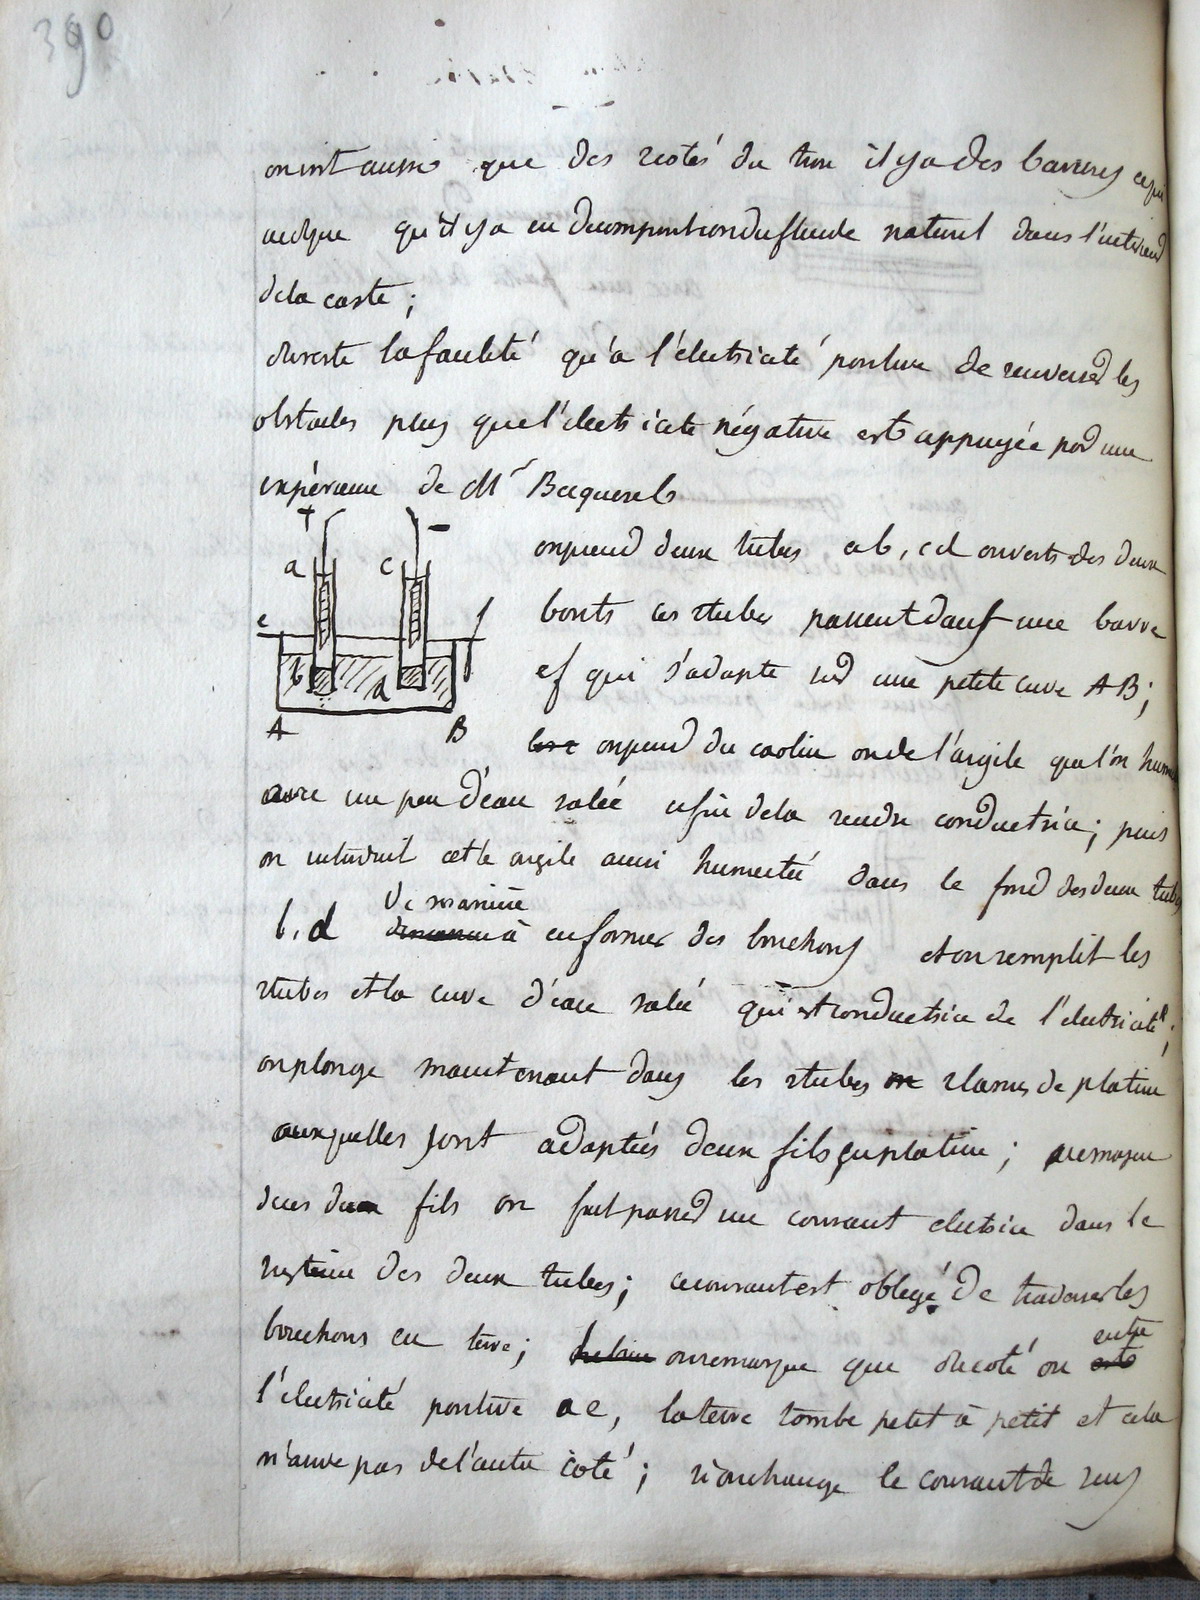 390
on voit aussi que des 2 cotés du trou il y a des bavures ce qui
indique qu'il y a eu decomposition du fluide naturel dans l'interieur
de la carte ;
du reste la faculté qu'a l'électricité positive de renverser les
obstacles plus que l'électricité négative est appuyée par une
expérience de Mr Becquerel
+ -
a c
e f
b d
A B
on prend deux tubes ab, cd ouverts des deux
bouts ces 2 tubes passent dans une barre
ef qui s'adapte sur une petite cuve AB ;
on prend du caolin ou de l'argile que l'on hume
avec un peu d'eau salée afin de la rendre conductrice ; puis
on introduit cette argile ainsi humectée dans le fond des deux tubes
de maniere
b, d à en former des bouchons et on remplit les
2 tubes et la cuve d'eau salée qui est conductrice de l'electricité ;
on plonge maintenant dans les 2 tubes 2 lames de platine
auxquelles sont adaptés deux fils en platine ;
deux fils on fait passer un courant electrice dans le
systeme des deux tubes ; ce courant est obligé de traverser les
bouchons en terre ; on remarque que du coté ou
entre
l'electricité positive a e, la terre tombe petit à petit et cela
n'arive pas de l'autre coté ; si on change le courant de sens